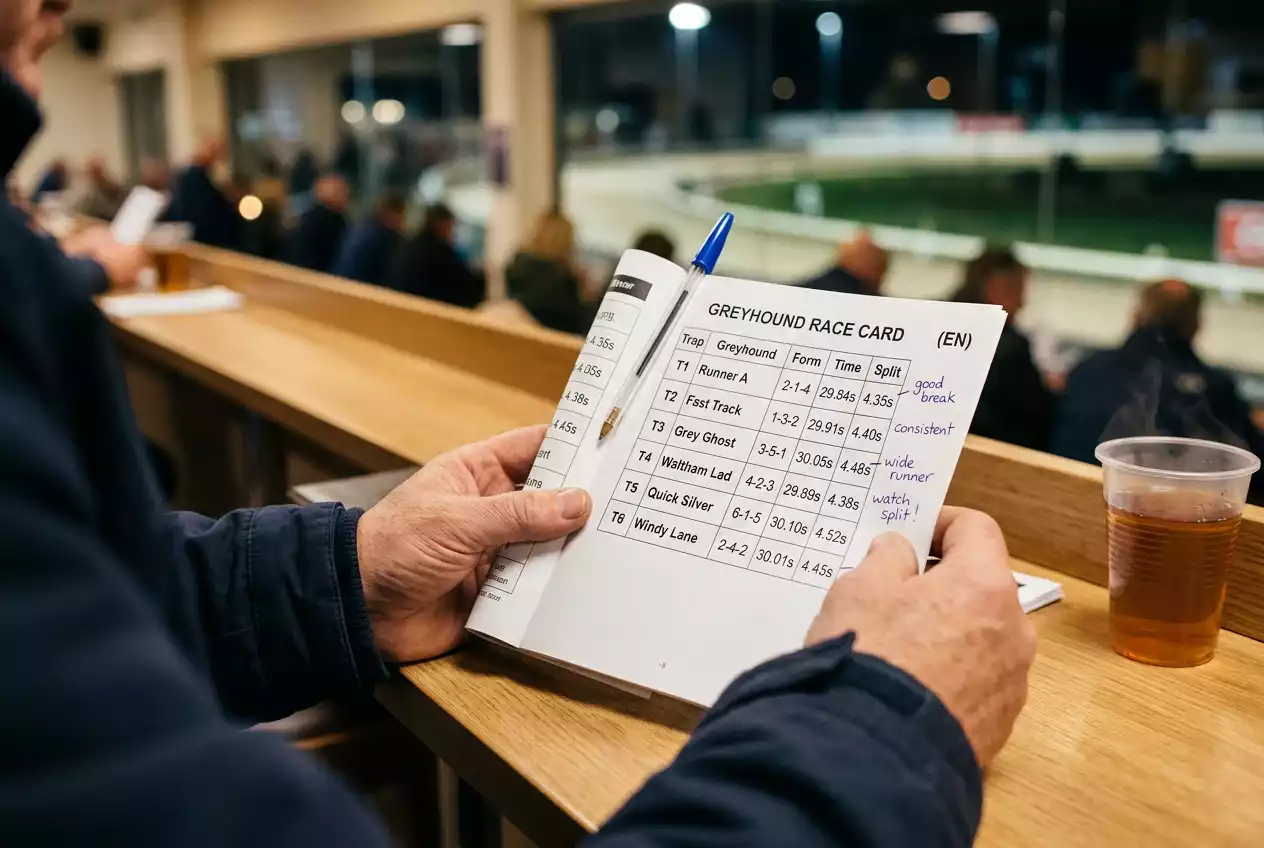 4.36s
4.05s
4.38s
4.45s
GREYHOUND RACE CARD (EN)
Trap Greyhound Form Time Split
T1 Runner A 2-1-4 29.84s 4.35s good break
T2 Fast Track 1-3-2 29.91s 4.40s consistent
T3 Grey Ghost 3-5-1 30.05s 4.48s wide runner
T4 Waltham Lad 4-2-3 29.89s 4.38s watch split!
T5 Quick Silver 6-1-5 30.10s 4.52s
T6 Windy Lane 2-4-2 30.01s 4.45s